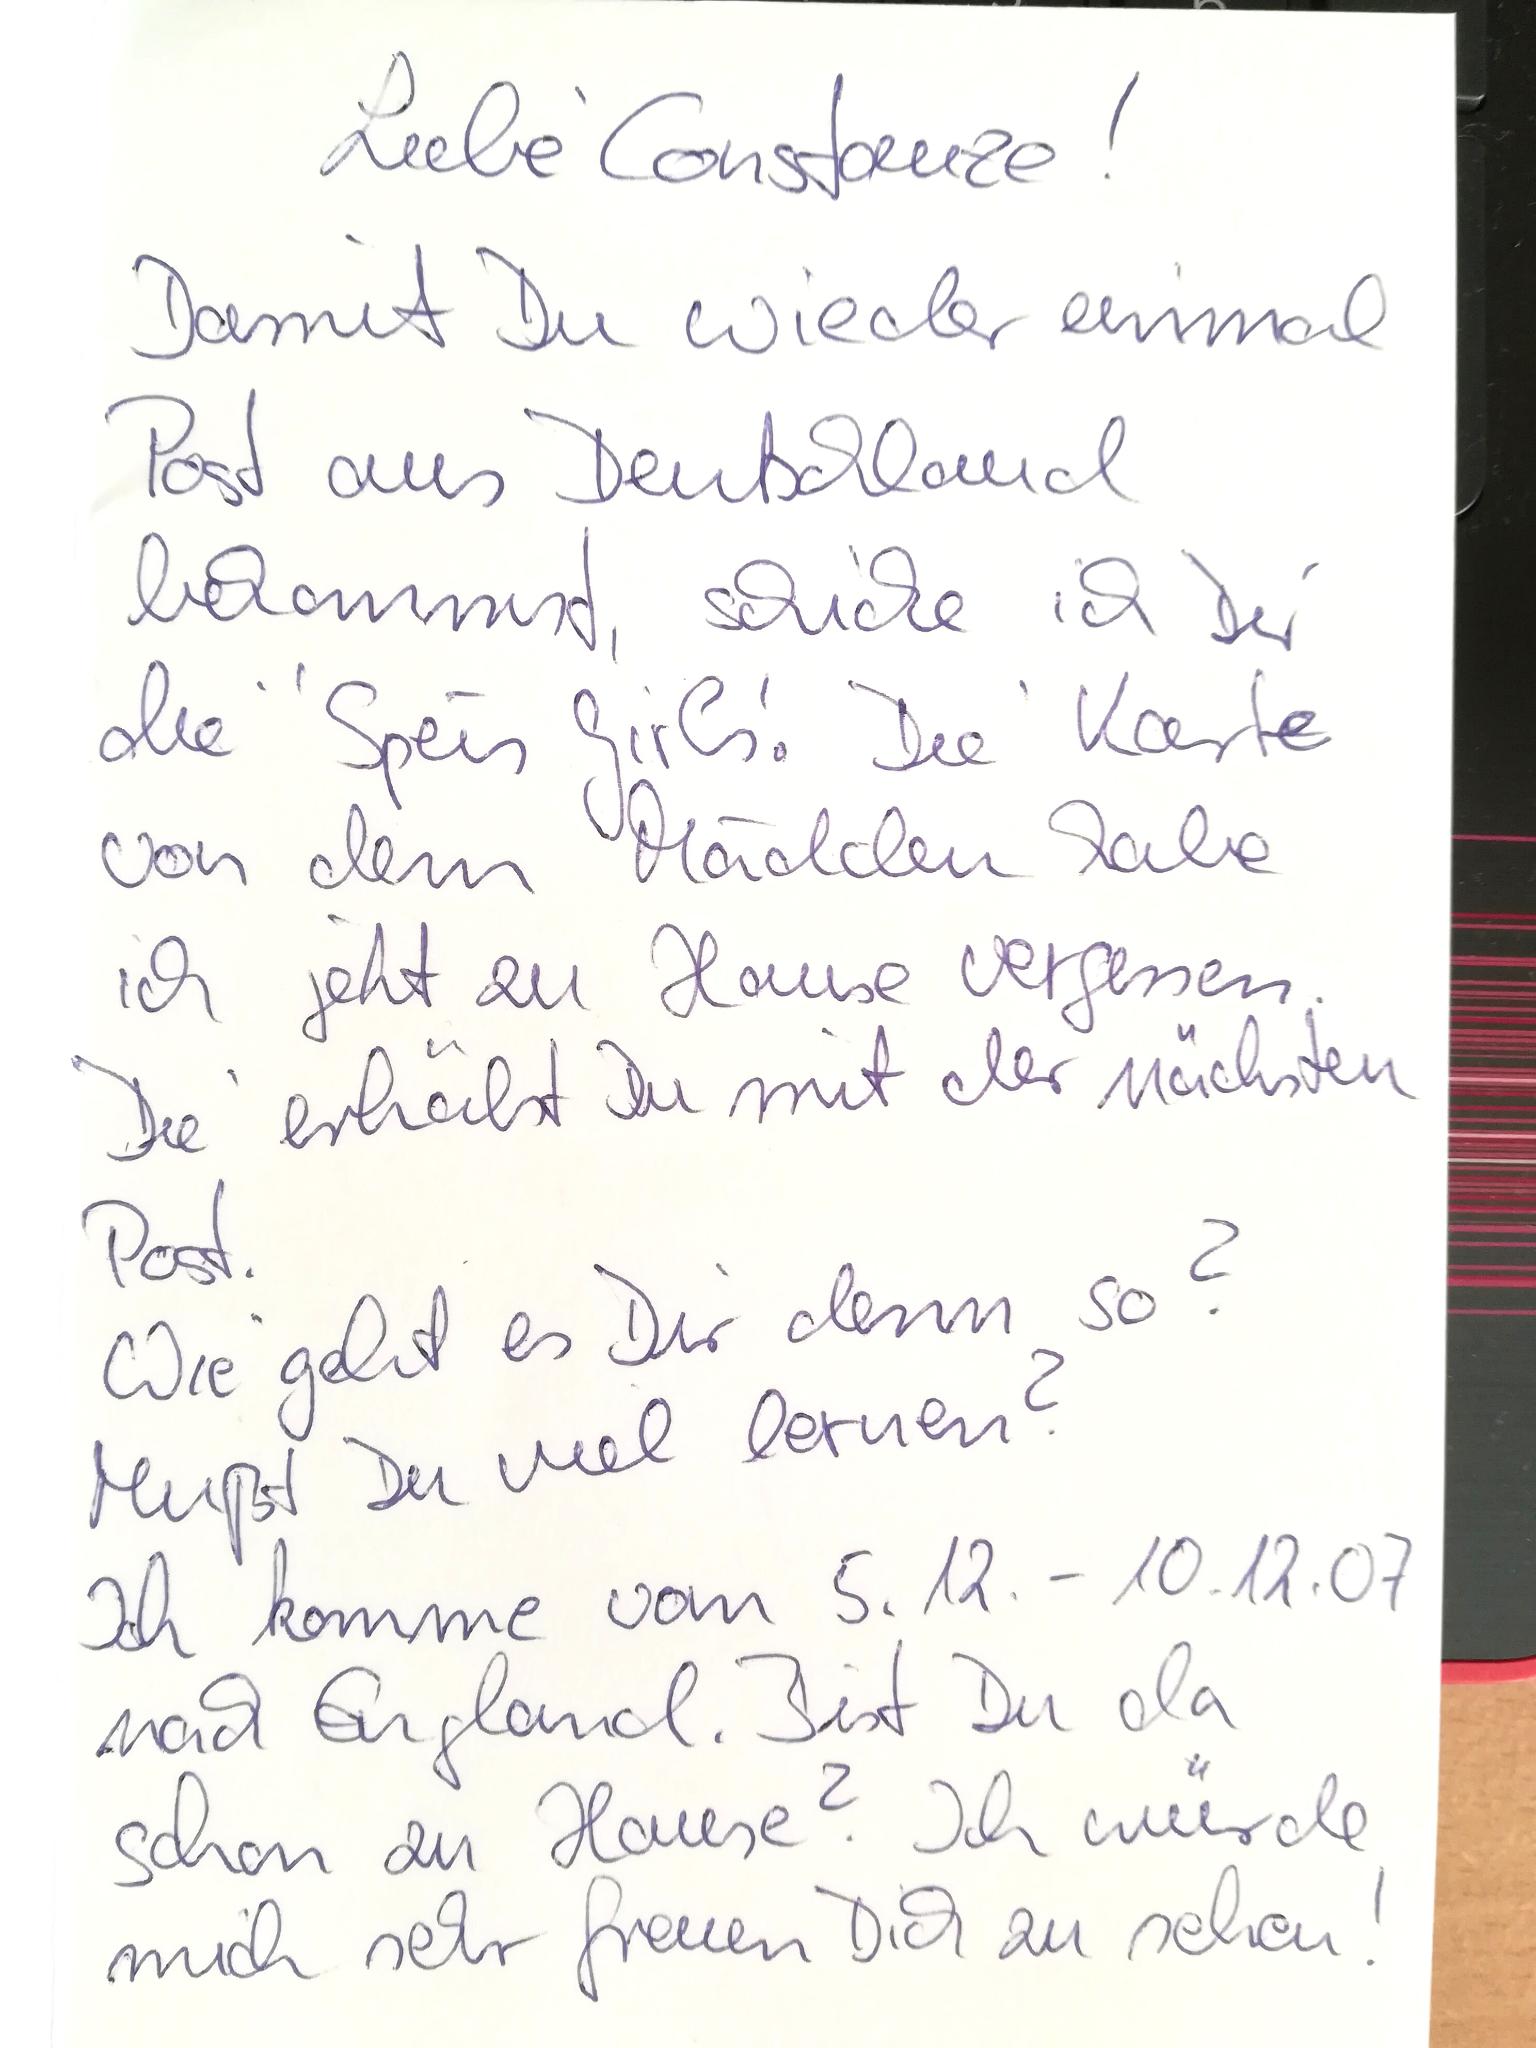 Liebe Constanze!
Damit Du wieder einmal
Post aus Deutschland
bekommst, schicke ich Dir
die "Speis Girls". Die Karte
von dem Mädchen habe
ich jetzt zu Hause vergessen.
Die erhälst Du mit der nächsten
Post.
Wie geht es Dir denn so?
Mußt Du viel lernen?
Ich komme vom 5.12. - 10.12.07
nach England. Bist Du da
schon zu Hause? Ich würde
mich sehr freuen Dich zu sehen!